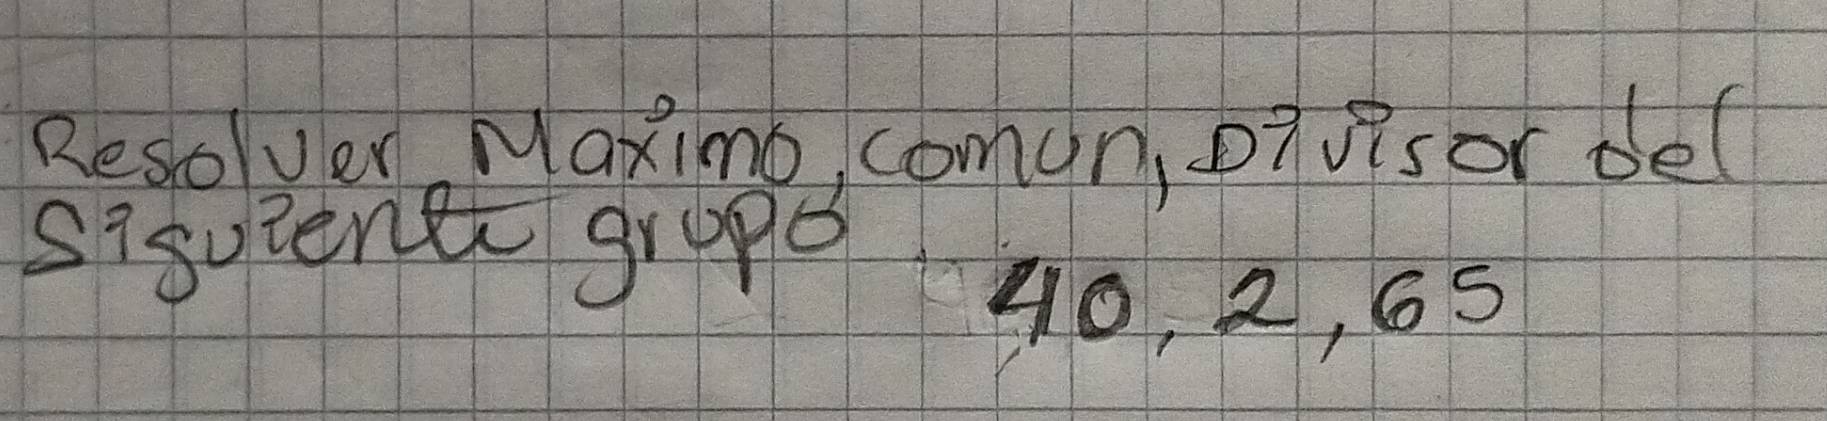 Resolver Maximo, comun, Divisor del
Siguiente grupo
40, 2, 65